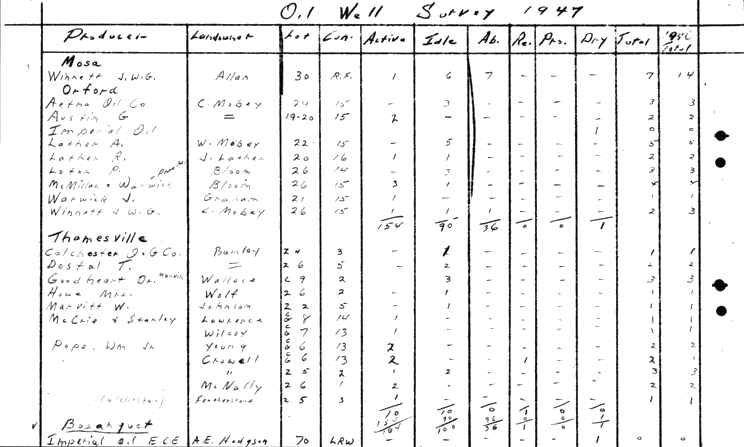 Oil Well Survey 1947
Producer Landowner Lot Con. Active Idle Ab. Re. Pro. Dry Total 1946 Total
Mosa
Winnett J.W.G. Allan 30 R.F. 1 6 7 - - - 7 14
Orford
Aetna Oil Co C. Mobey 24 15 - 3 - - - - 3 3
Austin G = 19-20 15 2 - - - - - 2 2
Imperial Oil 1 0 0
Lather A. W. Mobey 22 15 - 5 - - - - 5 5
Lather R. J. Lather 20 16 1 1 - - - - 2 2
P. Bloom 26 14 - 3 - - - - 3 3
McMillan & Warwick Bloom 26 15 3 1 - - - - 4 4
Warwick J. Graham 21 15 1 - - - - - 1 1
Winnett J.W.G. C. Mobey 26 15 1 1 1 - - - 2 3
154 90 36 0 0 1
Thamesville
Colchester O.G Co. Barnley 24 3 - 1 - - - - 1 1
Dostal T. = 26 5 - 2 - - - - 2 2
Goodheart Dr. Wallace 9 2 - 3 - - - - 3 3
Howe Mrs. Wolf 26 2 - 1 - - - - 1 1
Marvitt W. Johnson 22 5 - 1 - - - - 1 1
McCrie & Stanley Lawrence G 8 14 1 - - - - - 1 1
Wilcox G 7 13 1 - - - - - 1 1
Pope, Wm Jr Young G 6 13 2 - - - - - 2 2
Crowell G 6 13 2 - - 1 - - 2
" 2 5 2 1 2 - - - - 3 3
McNally 2 6 1 2 - - - - - 2 2
2 5 3 1 - - - - - 1 1
10 10 0 1 0 0
Bosanquet
Imperial Oil E.C.E A.E. Hodgson 70 LRW - - - - - 1 0 0